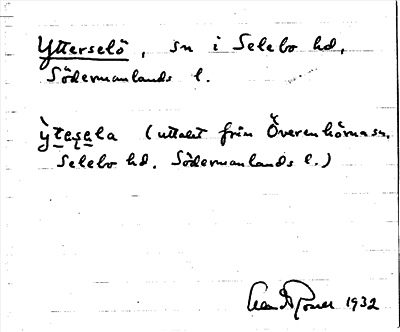 Ytterselö, sn i Selebo hd,
Södermanlands l.
ỳtesela (uttalet från Överenhörna sn,
Selebo hd. Södermanlands l.)
1932